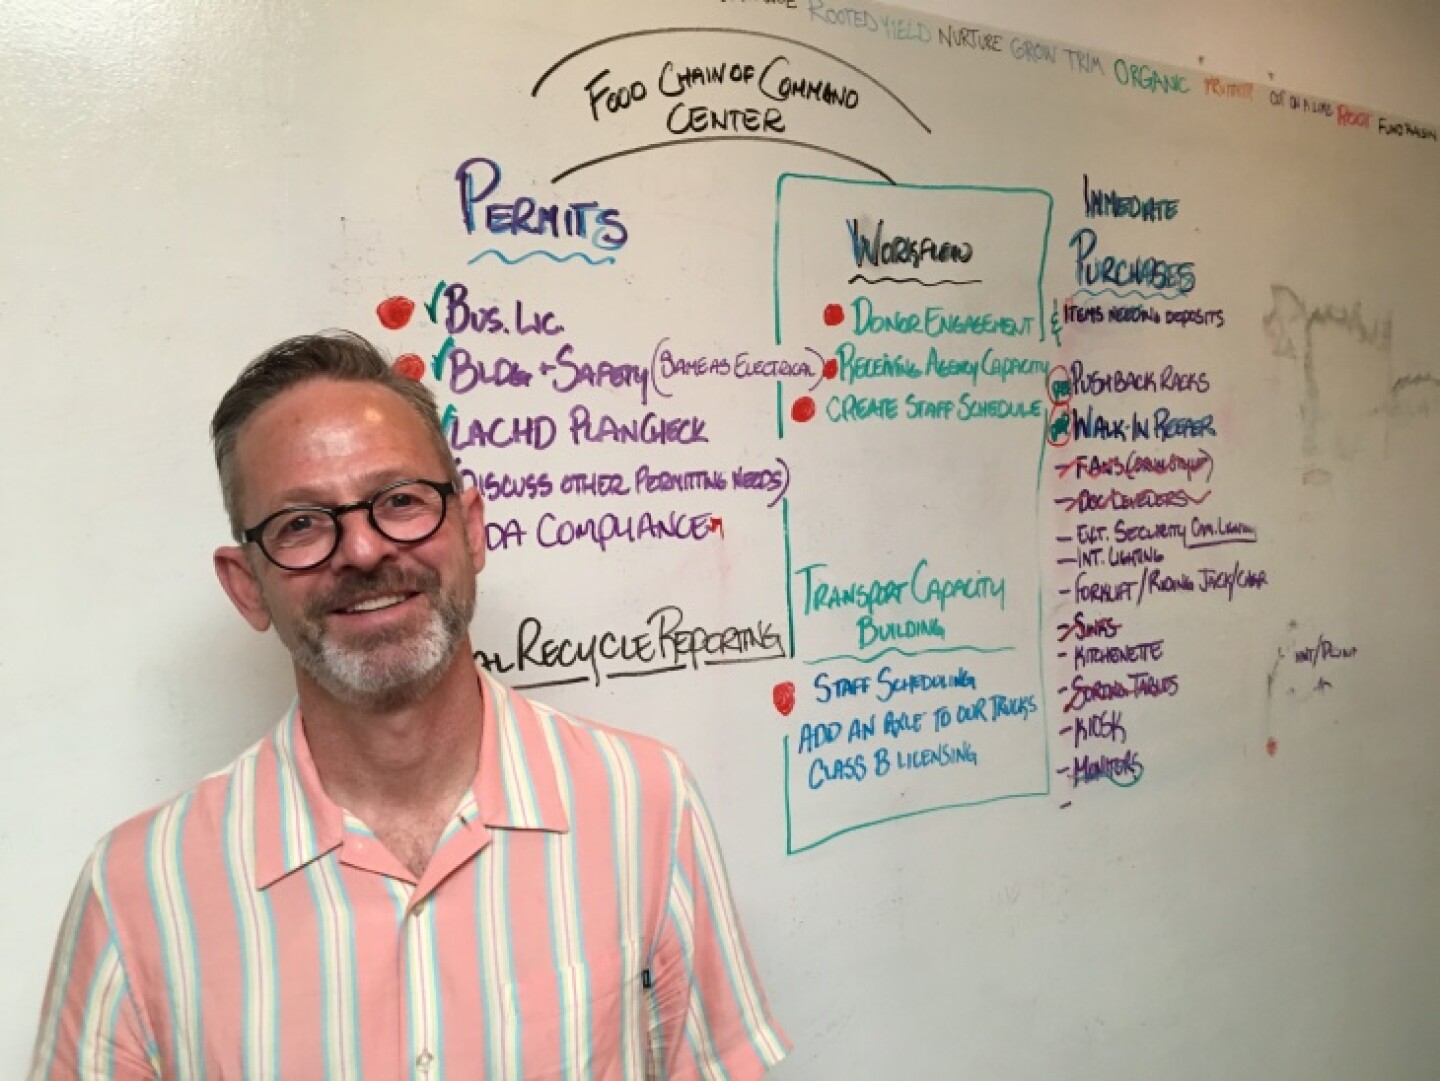 ROOTED YIELD NURTURE GROW TRIM ORGANIC ROOT
FOOD CHAIN OF COMMAND
CENTER
PERMITS
BUS. LIC.
BLDG + SAFETY (SAME AS ELECTRICAL)
LACHD PLAN CHECK
DISCUSS OTHER PERMITTING NEEDS)
DA COMPLIANCE
AL RECYCLE REPORTING
WORKFLOW
DONOR ENGAGEMENT
RECEIVING AGENCY CAPACITY
CREATE STAFF SCHEDULE
TRANSPORT CAPACITY
BUILDING
STAFF SCHEDULING
ADD AN AXLE TO OUR TRUCKS
CLASS B LICENSING
IMMEDIATE
PURCHASES
& ITEMS NEEDING DEPOSITS
PUSH BACK RACKS
WALK-IN REEFER
- FANS
- DOC LEVELERS
- EXT. SECURITY CAM. LIGHTING
- INT. LIGHTING
- FORKLIFT/RIDING JACK/CHAR
- SINKS
- KITCHENETTE
- SORTING TABLES
- KIOSK
- MONITERS
-